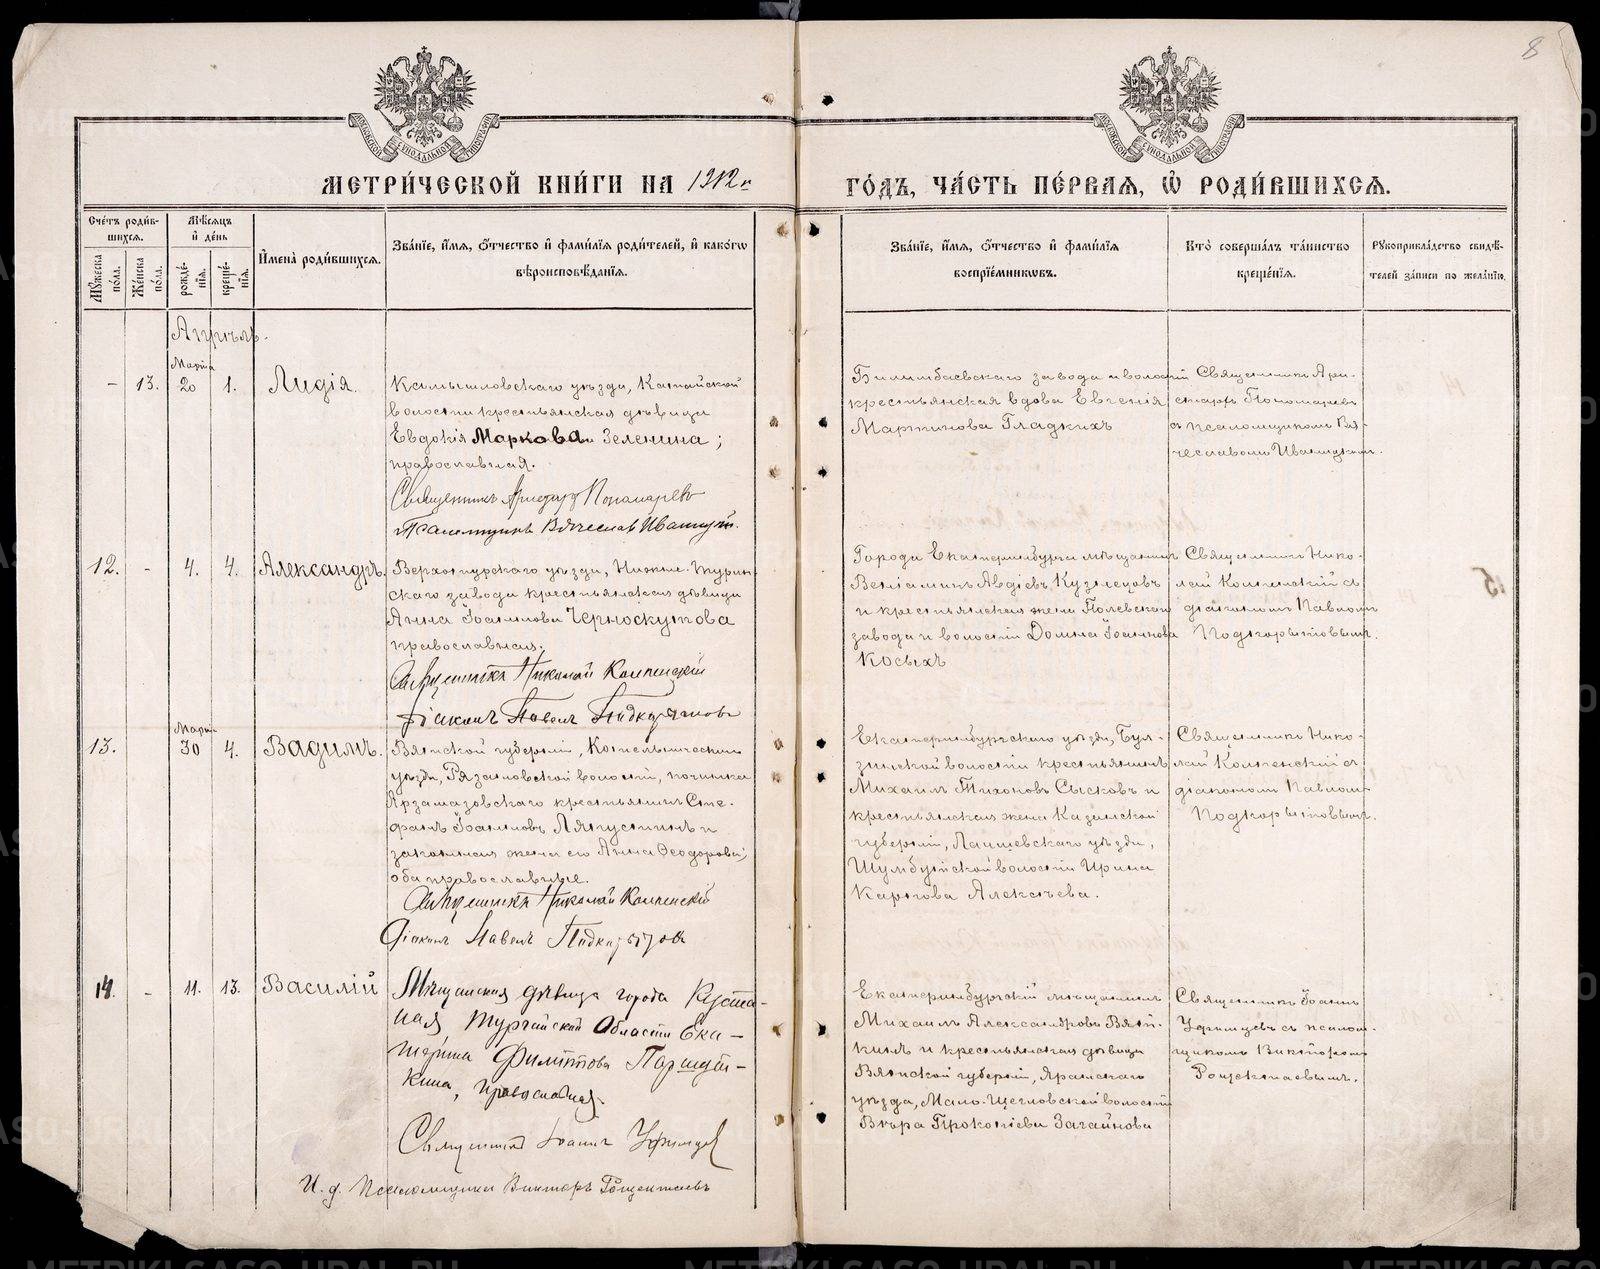 8
МОСКОВСКОЙ СѴНОДАЛЬНОЙ ТИПОГРАФІИ
МОСКОВСКОЙ СѴНОДАЛЬНОЙ ТИПОГРАФІИ
МЕТРИ́ЧЕСКОЙ КНИ́ГИ НА 1912 г.
ГО́ДЪ, ЧА́СТЬ ПЕ́РВАЯ, Ѡ҆ РОДИ́ВШИХСЯ.
Сче́тъ роди́вшихся.
Мѣ́сяцъ и҆ де́нь
Мꙋ́жеска по́ла.
Же́нска по́ла.
рожде́нїя.
креще́нїя.
И҆мена̀ роди́вшихся.
Зва́нїе, и҆́мя, ѻ҆́тчество и҆ фами́лїя роди́телей, и҆ како́гѡ
вѣроисповѣ́данїя.
Зва́нїе, и҆́мя, ѻ҆́тчество и҆ фами́лїя
воспрїе́мникѡвъ.
Кто̀ соверша́лъ та́инство
креще́нїя.
Рꙋкоприкла́дство свидѣ́-
телей за́писи по жела́нїю.
Апрѣль.
– 13. Марта 20 1. Лидія.
Камышловскаго уѣзда, Катайской
волости крестьянская дѣвица
Евдокія Маркова Зеленина;
православная.
Священникъ Аристархъ Пономаревъ
Псаломщикъ Вячеславъ Ивашкинъ.
Билимбаевскаго завода и волости
крестьянская вдова Евгенія
Мартинова Гладкихъ
Священникъ Ари-
стархъ Пономаревъ
съ псаломщикомъ Вя-
чеславомъ
12. – 4. 4. Александръ.
Верхотурскаго уѣзда, Нижне-Турин-
скаго завода крестьянская дѣвица
Анна Іоаннова Черноскутова
православная.
Священникъ Николай Компенскій
Діаконъ Павелъ
Города Екатеринбурга мѣщанинъ
Веніаминъ Авдіевъ Кузнецовъ
и крестьянская жена Полевскаго
завода и волости Домна Іоаннова
Косыхъ
Священникъ Нико-
лай Компенскій съ
діакономъ Павломъ
Подкорытовымъ.
13. Марта 30 4. Вадимъ.
Вятской губерніи, Котельническаго
уѣзда, Рязановской волости, починка
Арзамазовскаго крестьянинъ Сте-
фанъ Іоанновъ Ляпустинъ и
законная жена его Анна Ѳеодорова;
оба православные.
Священникъ Николай Компенскій
Діаконъ Павелъ
Екатеринбургскаго уѣзда, Бул-
зинской волости крестьянинъ
Михаилъ Тихоновъ Сысковъ и
крестьянская жена Казанской
губерніи, Лаишевскаго уѣзда,
Шумбутской волости Ирина
Карпова Алексѣева.
Священникъ Нико-
лай Компенскій съ
діакономъ Павломъ
Подкорытовымъ.
14. – 11. 13. Василій
Мѣщанская дѣвица города Куста-
ная Тургайской Области Ека-
терина Филиппова
кина, православная.
Священникъ Іоаннъ Уфимцевъ
И. д. Псаломщика Викторъ
Екатеринбургскій мѣщанинъ
Михаилъ Александровъ Вят-
кинъ и крестьянская дѣвица
Вятской губерніи, Яранскаго
уѣзда, Мало-Щегловской волости
Вѣра Прокопіева Загайнова
Священникъ Іоаннъ
Уфимцевъ съ псалом-
щикомъ Викторомъ
METRIKI.GASO-URAL.RU